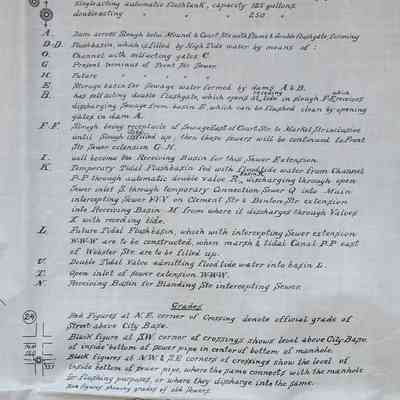 singleacting automatic flushtank, capacity 125 gallons
doubleacting " " " 250 "
A. Dam across Slough below Mound & Court Strs. with Flume & double flushgate, forming
D-D. Flushbasin, which is filled by High Tide water by means of:
O. Channel with selfacting gates C.
G. Present terminus of Front Str. Sewer.
H. Future " " " "
E. Storage basin for Sewage water formed by dams A & B.
B. has selfacting double flushgate, which opens at receding tide in slough F-F, which removes
discharging Sewage from basin E, which can be flushed clean by opening
gates in dam A.
F-F. Slough being receptacle of Sewage East of Court Str. to Market Str. inclusive
until Slough is filled up, then these sewers will be continued to Front
Str. Sewer extension G-H.
I. will become the Receiving Basin for this Sewer Extension.
K. Temporary Tidal Flushbasin fed with flood tide water from Channel
P-P through automatic double valve R, discharging through open
Sewer inlet S, through temporary Connection Sewer Q into Main
intercepting Sewer V-V on Clement Str. & Benton Str. extension
into Receiving Basin M from where it discharges through Valves
X with receding tide.
L. Future Tidal Flushbasin, which with intercepting Sewer extension
W-W-W are to be constructed, when marsh & tidal Canal P-P east
of Webster Str. are to be filled up.
U. Double Tidal Valve admitting flood tide water into basin L.
T. Open inlet of sewer extension W-W-W.
N. Receiving Basin for Blanding Str. intercepting Sewer.
Grades
Red Figures at N.E. corner of Crossing denote official grade of
Street above City Base.
Black figure at S.W. corner of crossings shows level above City Base
of inside bottom of sewer pipe in center of bottom of manhole.
Black figures at N.W. & S.E. corners of crossings show the level of
inside bottom of sewer pipe, where the same connects with the manhole
for flushing purposes, or where they discharge into the same.
figures showing grades of old sewers.
24